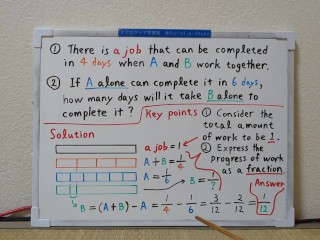 ① There is a job that can be completed
in 4 days when A and B work together.
② If A alone can complete it in 6 days,
how many days will it take B alone to
complete it?
Key points
① Consider the
total amount
of work to be 1.
② Express the
progress of work
as a fraction.
Solution
a job = 1
A + B = 1/4
A = 1/6
B = 1/?
B = (A+B) - A = 1/4 - 1/6 = 3/12 - 2/12 = 1/12
Answer